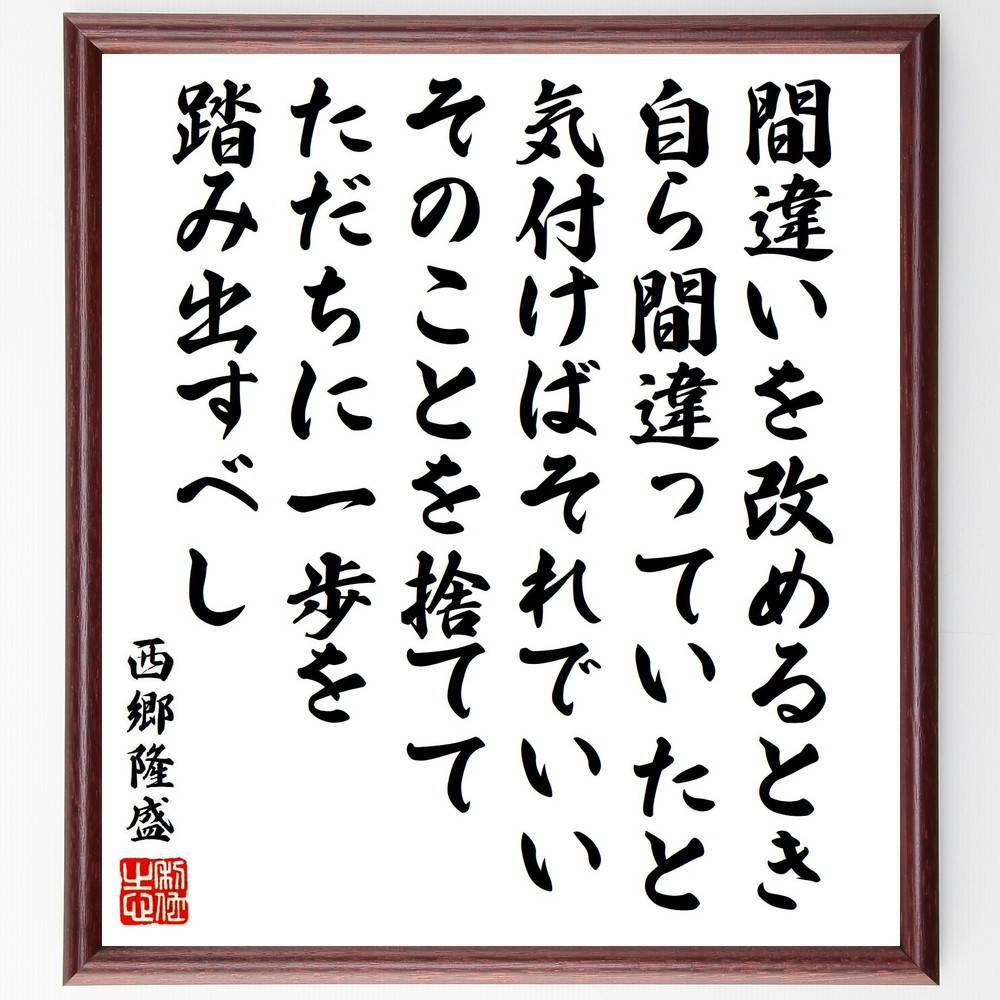 間違いを改めるとき
自ら間違っていたと
気付けばそれでいい
そのことを捨てて
ただちに一歩を
踏み出すべし
西郷隆盛